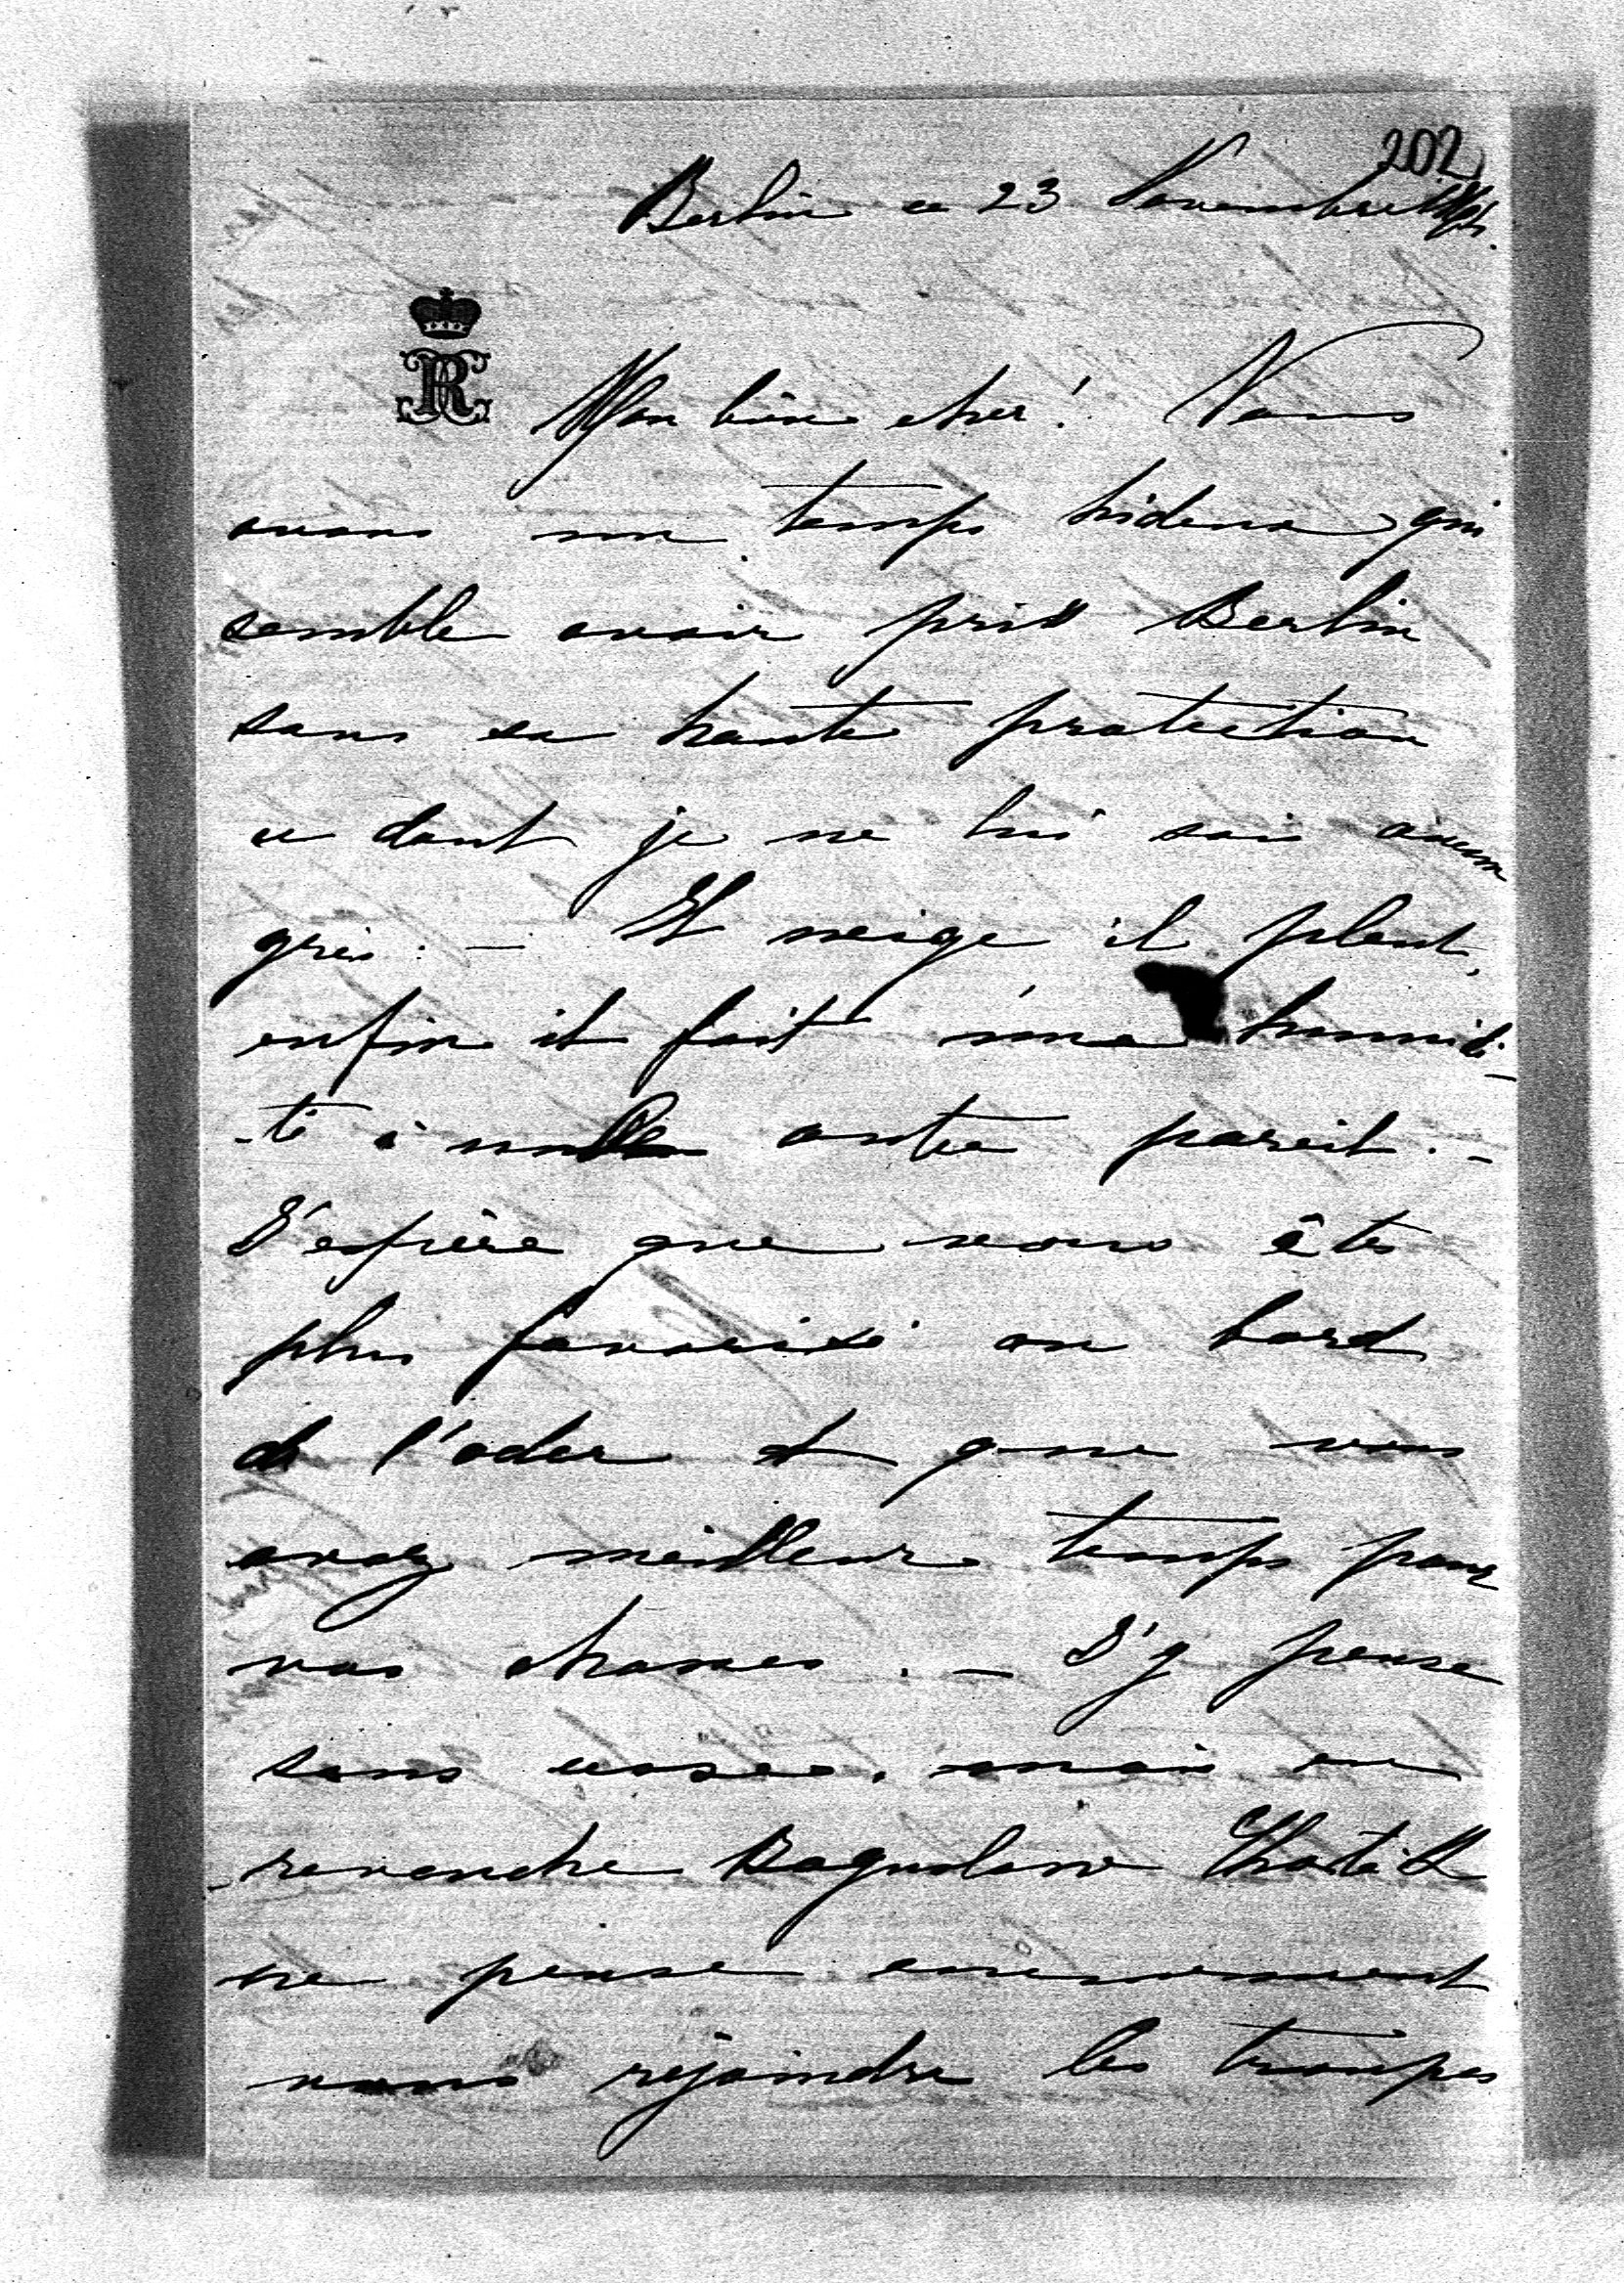 202
Berlin ce 23 Novembre
Mon bien cher! Nous
avons un temps hideux qui
semble avoir pris Berlin
sous sa haute protection
ce dont je ne lui sais aucun
grès. — Il neige il pleut,
enfin il fait une humidi-
-té à nulle autre pareil. -
J'espère que vous êtes
plus favorisé au bord
de l'oder et que vous
avez meilleure temps pour
vos chasses. — J'y pense
sans cesse, mais en
revanche Boguslaw
ne pense aucunement
nous rejoindre les troupes